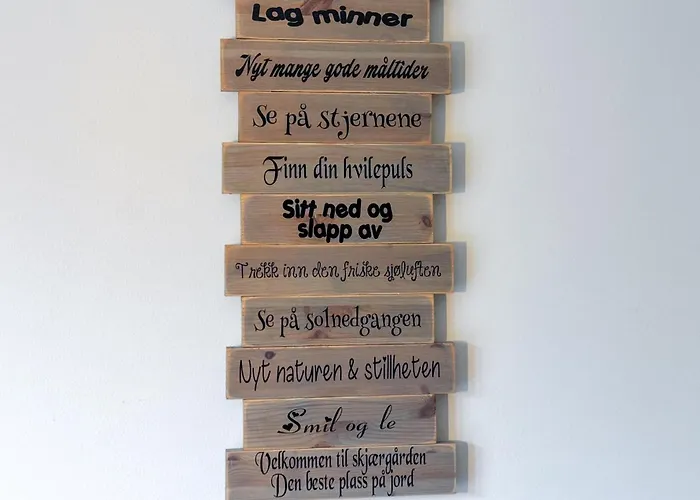 Lag minner
Nyt mange gode måltider
Se på stjernene
Finn din hvilepuls
Sitt ned og
slapp av
Trekk inn den friske sjøluften
Se på solnedgangen
Nyt naturen & stillheten
Smil og le
Velkommen til skjærgården
Den beste plass på jord